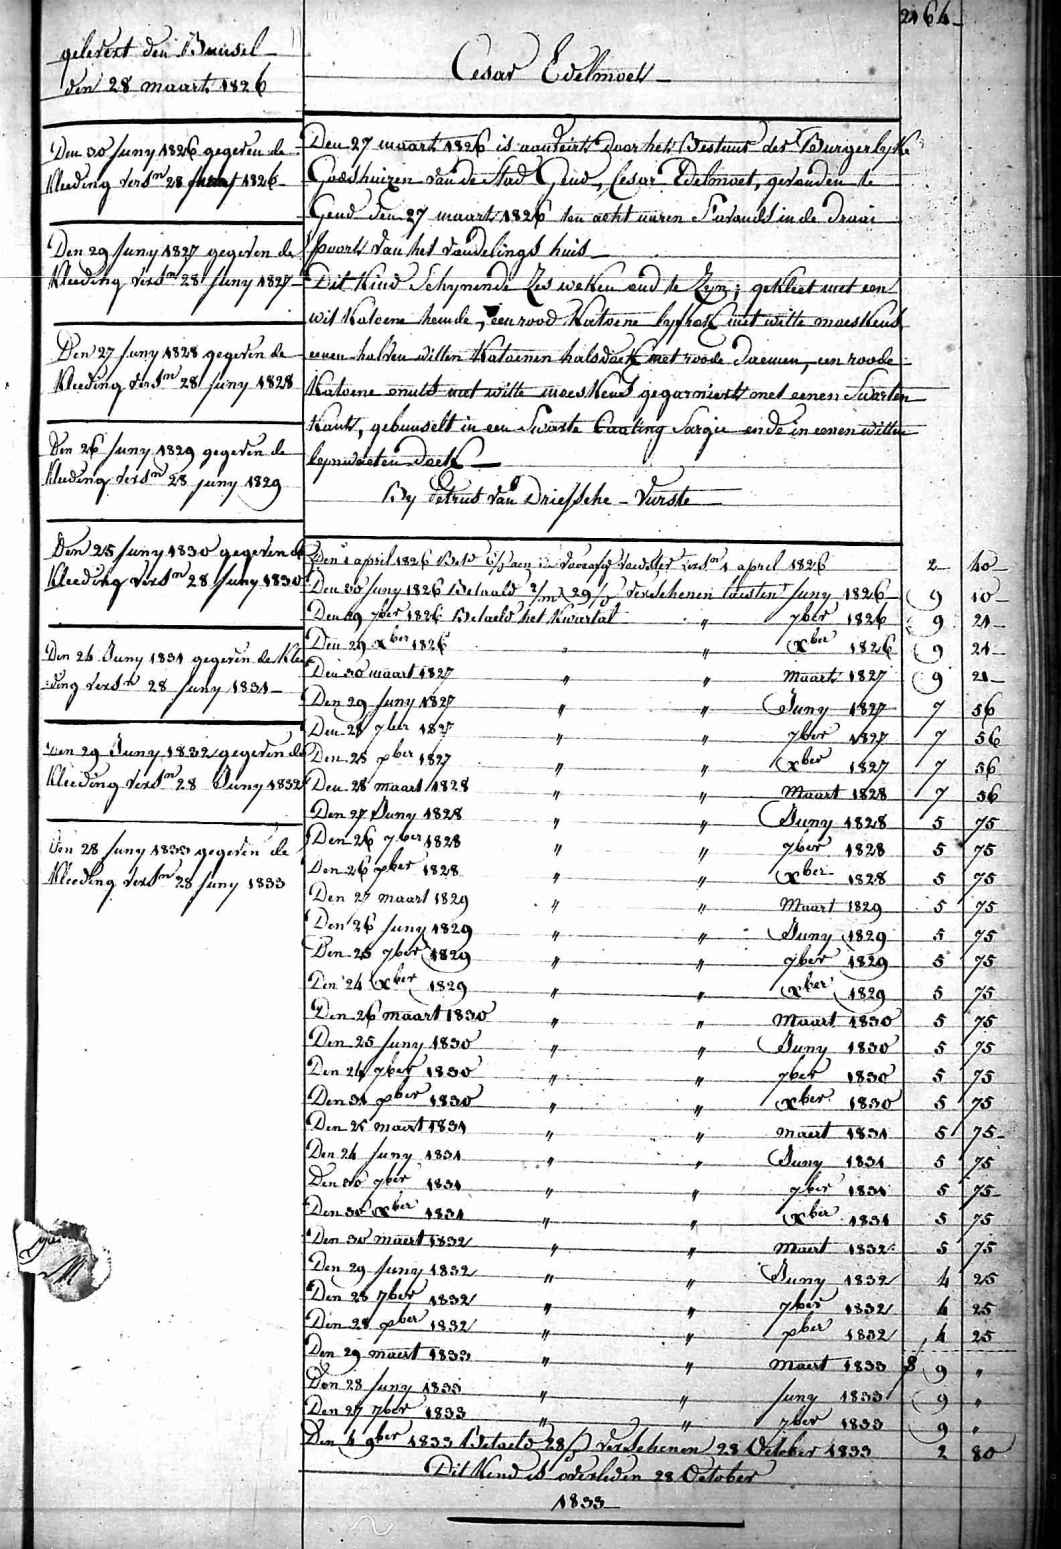 2164
gelevert den Bunsel
den 28 maart 1826
Cesar Edelmoet
Den 30 Juny 1826 gegeven de
kleeding versn 28 Juny 1826
Den 29 Juny 1827 gegeven de
kleeding versn 28 Juny 1827
Den 27 Juny 1828 gegeven de
kleeding versn 28 Juny 1828
Den 26 Juny 1829 gegeven de
kleeding versn 28 juny 1829
Den 25 Juny 1830 gegeven de
kleeding versn 28 Juny 1830
Den 24 Juny 1831 gegeven de klee
ding versn 28 Juny 1831
Den 29 Juny 1832 gegeven de
kleeding versn 28 Juny 1832
Den 28 Juny 1833 gegeven de
kleeding versn 28 Juny 1833
Den 27 maart 1826 is aanveirt door het Bestuur der Burgerlyke
Godshuizen van de Stad Gend, Cesar Edelmoet, gevonden te
Gend den 27 maart 1826 ten acht uuren S'avonds in de draai
poort van het vondelings huis
Dit kind Schynende Zes weken oud te Zyn; gekleet met een
wit katoene hemde, een rood katoene lyfrok met witte moeskens
eenen halven witten katoenen halsdoek met roode daemen, een roode
katoene muts met witte moeskens gegarniert met eenen Swarten
kant, gebunselt in een Swarte Sargie ende in eenen witten
lynwaeten doek
By Petrus Van Driessche - Vurste
Den 1 april 1826 versn 1 april 1826 2 40
Den 30 Juny 1826 Betaald verschenen Juny 1826 9 10
Den 29 7ber 1826 Betaeld het kwartal " 7ber 1826 9 21
Den 29 xber 1826 " " xber 1826 9 21
Den 30 maart 1827 " " maart 1827 9 21
Den 29 Juny 1827 " " Juny 1827 7 56
Den 28 7ber 1827 " " 7ber 1827 7 56
Den 28 xber 1827 " " xber 1827 7 56
Den 28 maart 1828 " " Maart 1828 7 56
Den 27 Juny 1828 " " Juny 1828 5 75
Den 26 7ber 1828 " " 7ber 1828 5 75
Den 26 xber 1828 " " xber 1828 5 75
Den 27 maart 1829 " " Maart 1829 5 75
Den 26 Juny 1829 " " Juny 1829 5 75
Den 25 7ber 1829 " " 7ber 1829 5 75
Den 24 xber 1829 " " xber 1829 5 75
Den 26 maart 1830 " " Maart 1830 5 75
Den 25 Juny 1830 " " Juny 1830 5 75
Den 24 7ber 1830 " " 7ber 1830 5 75
Den 31 xber 1830 " " xber 1830 5 75
Den 25 maert 1831 " " maert 1831 5 75
Den 24 Juny 1831 " " Juny 1831 5 75
Den 30 7ber 1831 " " 7ber 1831 5 75
Den 30 xber 1831 " " xber 1831 5 75
Den 30 maert 1832 " " Maert 1832 5 75
Den 29 Juny 1832 " " Juny 1832 4 25
Den 28 7ber 1832 " " 7ber 1832 4 25
Den 28 xber 1832 " " xber 1832 4 25
Den 29 maert 1833 " " Maert 1833 9 "
Den 28 Juny 1833 " " Juny 1833 9 "
Den 27 7ber 1833 " " 7ber 1833 9 "
Den 4 9ber 1833 Betaeld 28 verschenen 28 October 1833 2 80
Dit Kind is overleden 28 October
1833